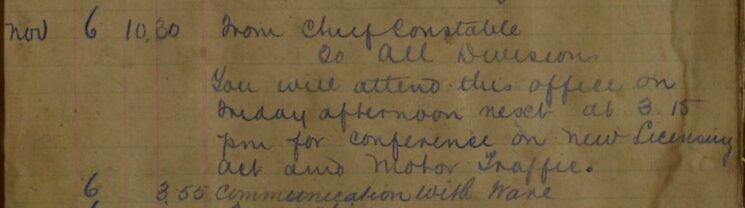 Nov 6 10.30 From Chief Constable
To All Divisions
You will attend this office on
Friday afternoon next at 3.15
pm for conference on New Licensing
Act and Motor Traffic.
6 3.55 Communication with Ware